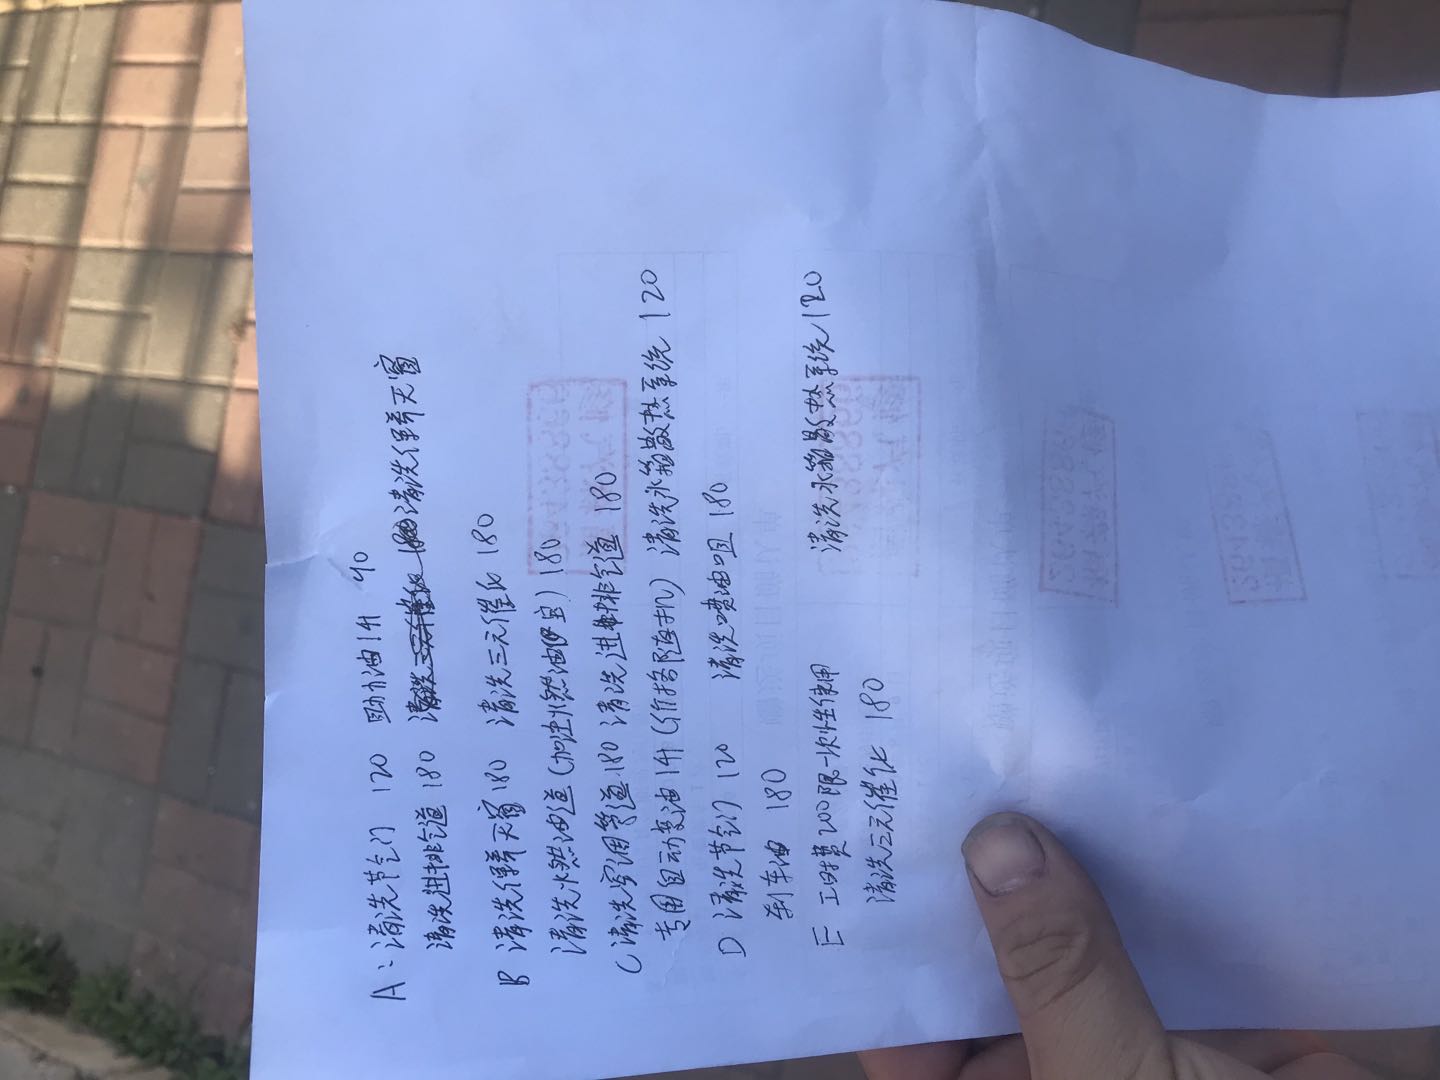 A、清洗节气门 120 助力油1升 40
清洗进排气道 180 清洗保养天窗
B 清洗保养天窗 180 清洗三元催化 180
清洗燃油道(加注燃油便宜) 180
C 清洗空调管道 180 清洗进排气道 180
专用自动变油1升(价格随机) 清洗水箱散热系统 120
D 清洗节气门 120 清洗喷油咀 180
刹车油 180
E 工时费200限一次性使用 清洗水箱散热系统 120
清洗三元催化 180